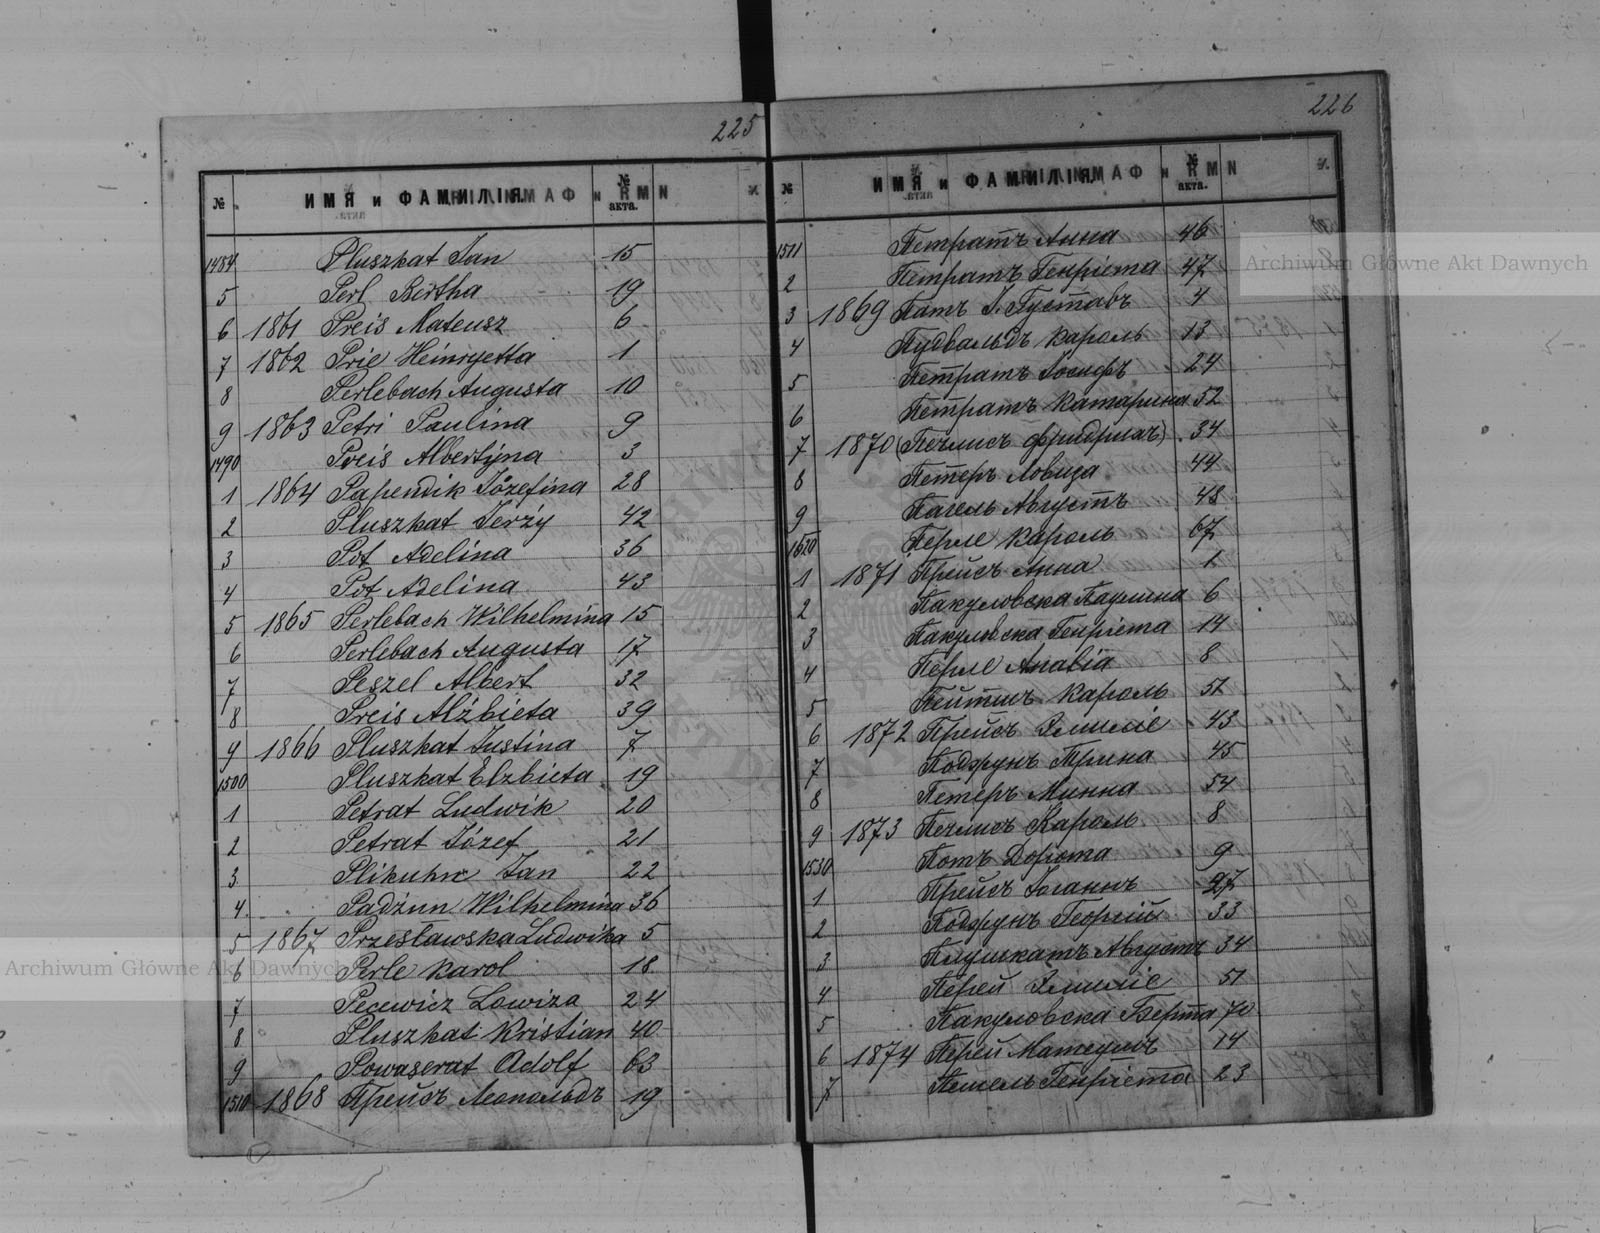 225
№ ИМЯ и ФАМИЛІЯ. № акта.
1484 Pluszkat Jan 15
5 Perl Bertha 19
6 1861 Preis Mateusz 6
7 1862 Prie Heinryetta 1
8 Perlebach Augusta 10
9 1863 Petri Paulina 9
1490 Preis Albertyna 3
1 1864 Papendik Józefina 28
2 Pluszkat Jerzy 42
3 Pot Adelina 36
4 Pot Adelina 43
5 1865 Perlebach Wilhelmina 15
6 Perlebach Augusta 17
7 Peszel Albert 32
8 Preis Alżbieta 39
9 1866 Pluszkat Justina 7
1500 Pluszkat Elzbieta 19
1 Petrat Ludwik 20
2 Petrat Józef 21
3 Plikuhn Jan 22
4 Padżun Wilhelmina 36
5 1867 Przesławska Ludwika 5
6 Perle Karol 18
7 Pecewicz Lowiza 24
8 Pluszkat Kristian 40
9 Powaserat Adolf 63
1510 1868 Прейсъ Леопольдъ 19
226
№ ИМЯ и ФАМИЛІЯ. № акта.
1511 Петратъ Анна 46
2 Петратъ Генріета 47
3 1869 Патъ І. Густавъ 4
4 Пудвальдъ Кароль 13
5 Петратъ Іосифъ 24
6 Петратъ Катарина 52
7 1870 (Печлисъ Фридрихъ) 34
8 Петеръ Ловиза 44
9 Пагель Августъ 48
1520 Перле Кароль 67
1 1871 Прейсъ Анна 1
2 Пакуловска Паулина 6
3 Пакуловска Генріета 14
4 Перле 8
5 Кароль 51
6 1872 Прейсъ Эмиліе 43
7 Подзунъ Трина 45
8 Петеръ Минна 54
9 1873 Печлисъ Кароль 8
1530 Потъ Дорота 9
1 Прейсъ Іоганнъ 27
2 Подзунъ Георгій 33
3 Плушкатъ Августъ 34
4 Перей Эмиліе 51
5 Пакуловска Берта 70
6 1874 Перей Матеушъ 14
7 Пешель Генріета 23
Archiwum Główne Akt Dawnych
Archiwum Główne Akt Dawnych